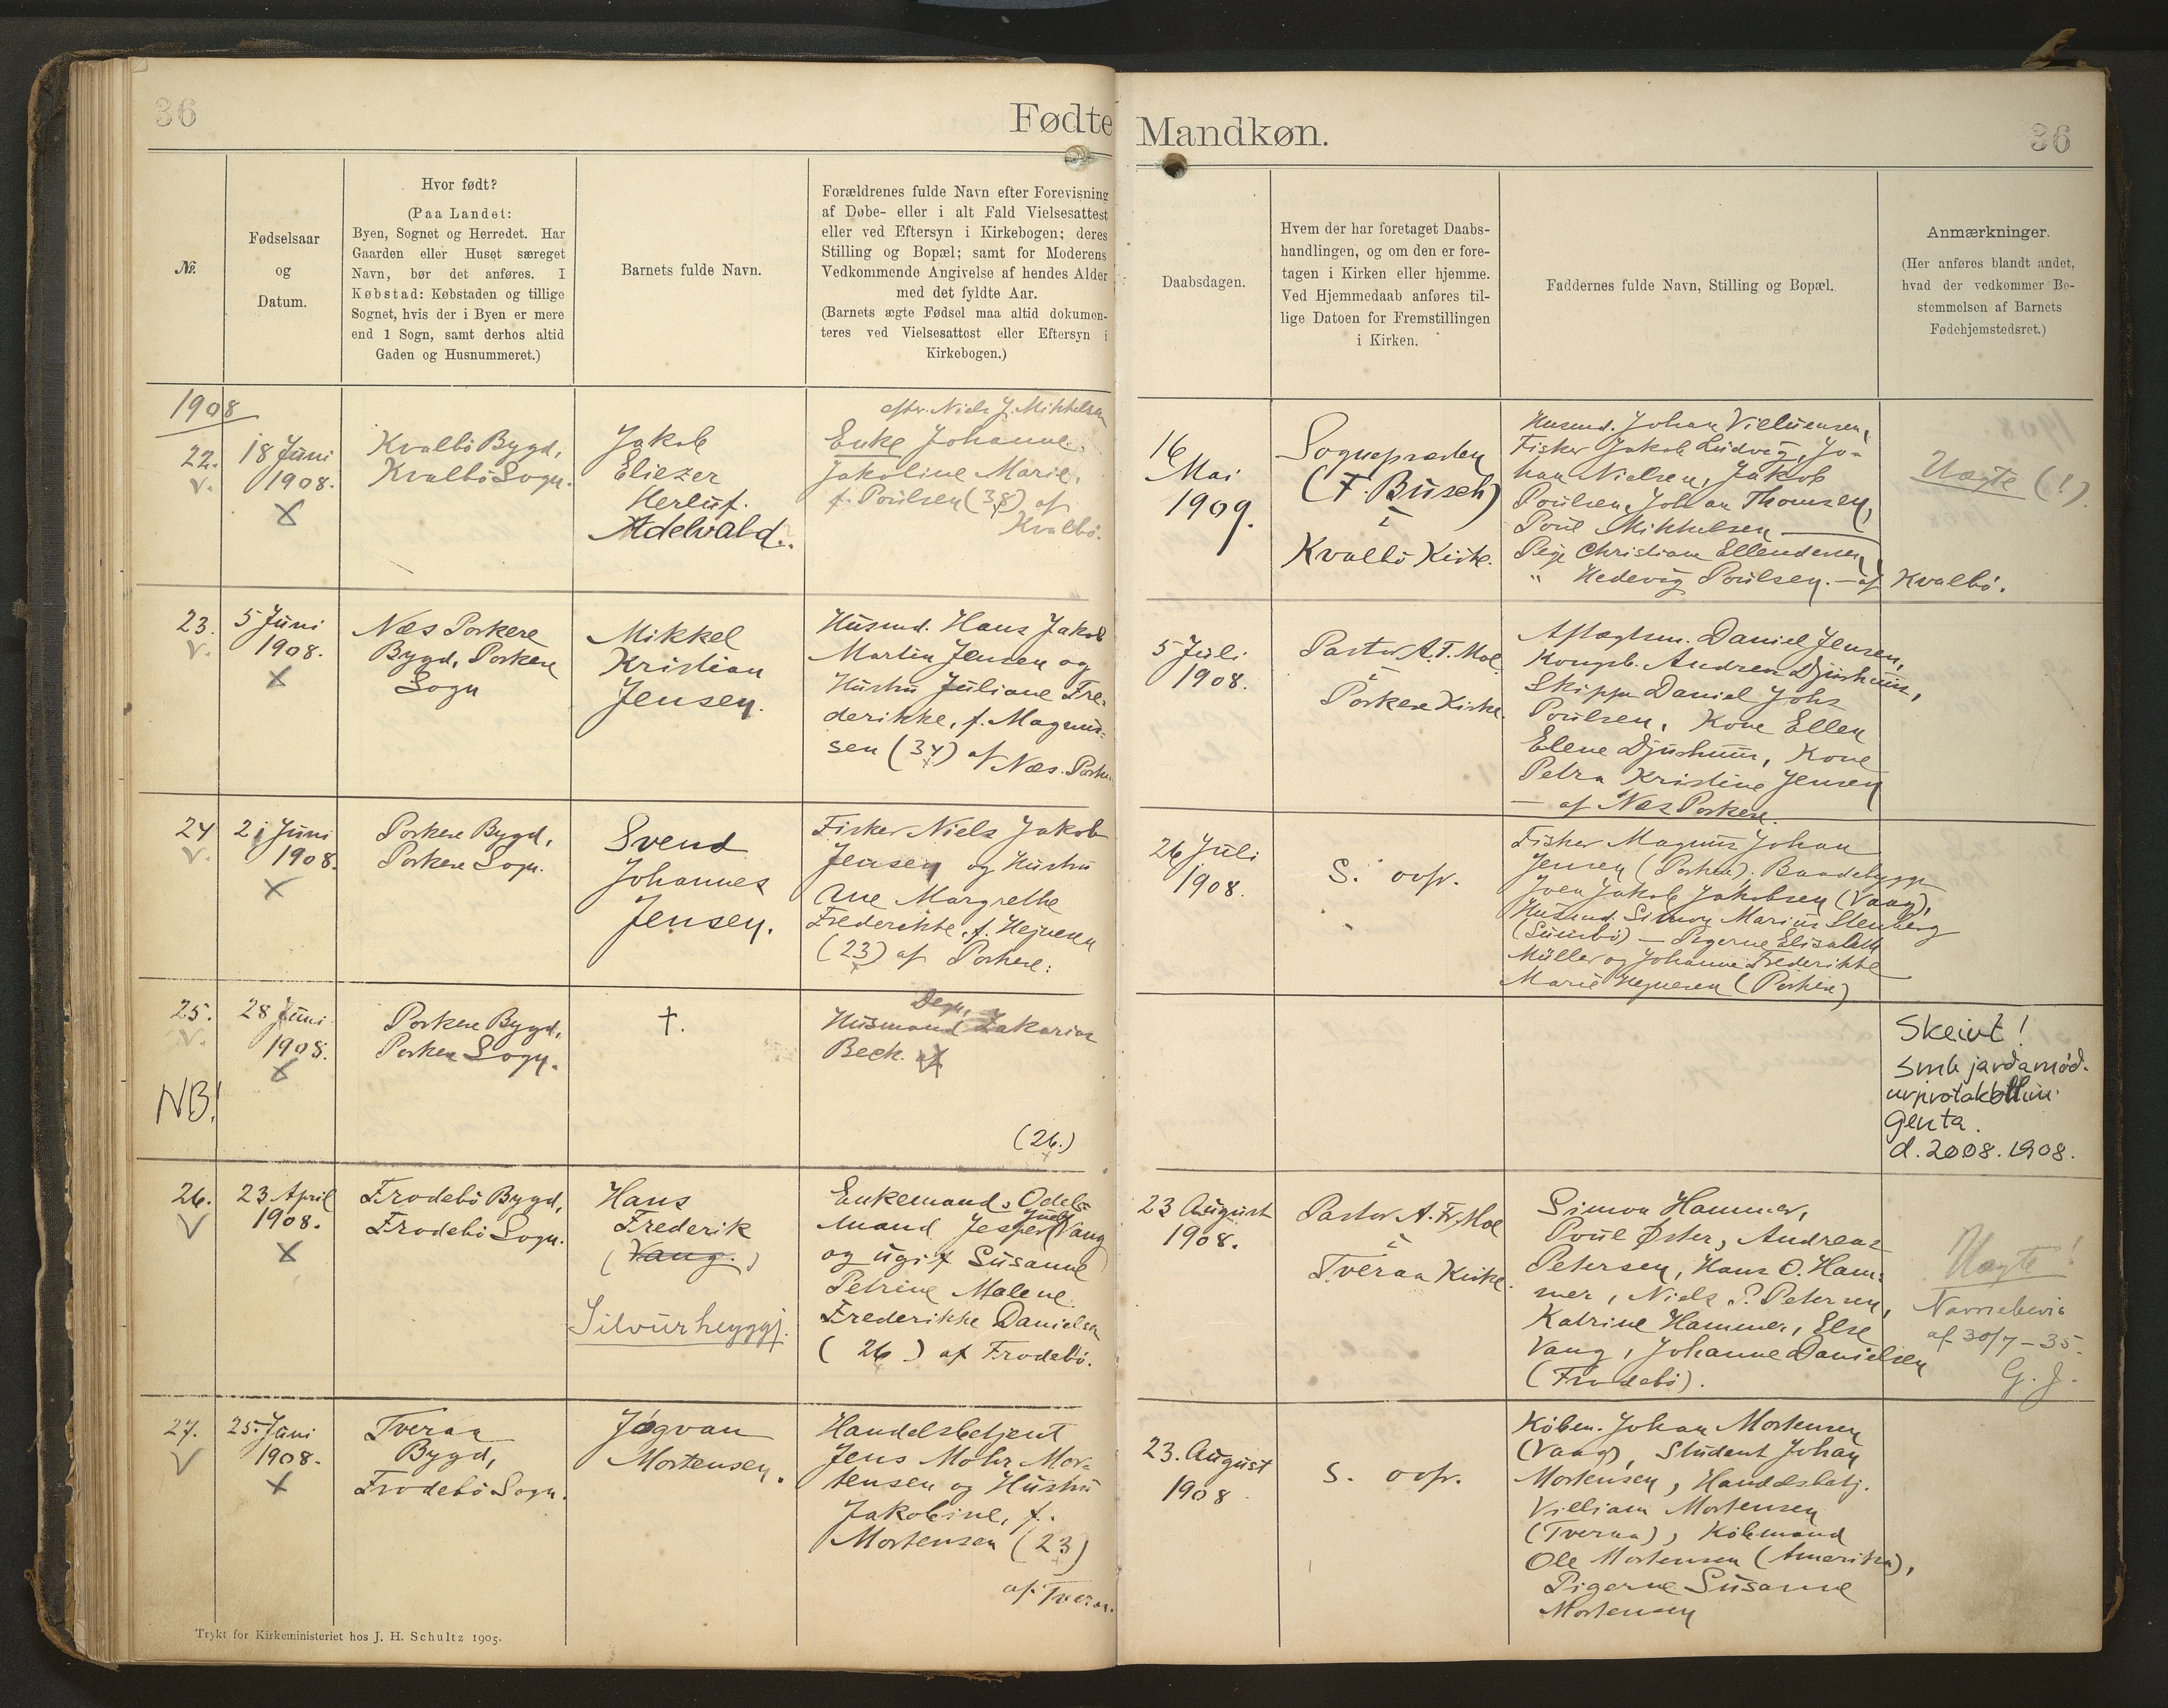 36
Fødte
Mandkøn.
36
No.
Fødselsaar
og
Datum.
Hvor født?
(Paa Landet:
Byen, Sognet og Herredet. Har
Gaarden eller Huset særeget
Navn, bør det anføres. I
Købstad: Købstaden og tillige
Sognet, hvis der i Byen er mere
end 1 Sogn, samt derhos altid
Gaden og Husnummeret.)
Barnets fulde Navn.
Forældrenes fulde Navn efter Forevisning
af Døbe- eller i alt Fald Vielsesattest
eller ved Eftersyn i Kirkebogen; deres
Stilling og Bopæl; samt for Moderens
Vedkommende Angivelse af hendes Alder
med det fyldte Aar.
(Barnets ægte Fødsel maa altid dokumen-
teres ved Vielsesattest eller Eftersyn i
Kirkebogen.)
Daabsdagen.
Hvem der har foretaget Daabs-
handlingen, og om den er fore-
tagen i Kirken eller hjemme.
Ved Hjemmedaab anføres til-
lige Datoen for Fremstillingen
i Kirken.
Faddernes fulde Navn, Stilling og Bopæl.
Anmærkninger.
(Her anføres blandt andet,
hvad der vedkommer Be-
stemmelsen af Barnets
Fødehjemstedsret.)
1908
22.
18 Juni
1908.
Kvalbö Bygd,
Kvalbö Sogn.
Jakob
Eliezer
Herluf.
Adelvald.
efter Niels J. Mikkelsen
Enke Johanne
Jakoline Marie,
f. Poulsen (38) af
Kvalbö.
16
Mai
1909.
Sognepresten
(F. Busch)
i
Kvalbö Kirke.
Husmd. Johan Villumsen,
Fisker Jakob Ludvig, Jo-
han Nielsen, Jakob
Poulsen, Johan Thomsen,
Poul Mikkelsen
Pige Christiane Ellendersen,
" Hedevig Poulsen. - af Kvalbö.
Uægte (!).
23.
5 Juni
1908.
Næs Porkere
Bygd, Porkere
Sogn
Mikkel
Kristian
Jensen.
Husmd. Hans Jakob
Martin Jensen og
Hustru Juliane Fre-
derikke, f. Magnus-
sen (34) af Næs. Porkere
5 Juli
1908.
Pastor A. F. Moe
i
Porkere Kirke.
Aftægtsm. Daniel Jensen,
Kongsb. Andreas Djurhuus,
Skipper Daniel Johs
Poulsen, Kone Ellen
Elene Djurhuus, Kone
Petra Kristine Jensen
— af Næs Porkere.
24
21 Juni
1908.
Porkere Bygd,
Porkere Sogn.
Svend
Johannes
Jensen.
Fisker Niels Jakob
Jensen og Hustru
Ane Margrethe
Frederikke, f. Hejnesen
(23) af Porkere.
26 Juli
1908.
S. ovfr.
Fisker Magnus Johan
Jensen (Porkere), Baadebygger
Sven Jakob Jakobsen (Vaag),
Husmd. Simon Marius Stenberg
(Sumbö) — Pigerne Elisabeth
Müller og Johanne Frederikke
Marie Hejnesen (Porkere)
25.
NB!
28 Juni
1908.
Porkere Bygd,
Porkere Sogn.
†.
Degn,
Husmand Zakarias
Beck. af
(26.)
Skeivt!
smb jarðamóð-
urprotokollini
Genta.
d. 2008.1908.
26.
23 April
1908.
Frodebö Bygd,
Frodebö Sogn.
Hans
Frederik
(Vang.)
Silvurheyggj.
Enkemand, Odels-
mand Jesper Vang
og ugift Susanne
Petrine Malene
Frederikke Danielsen
(26) af Frodebö.
23 August
1908.
Pastor A. Fr. Moe
i
Tveraa Kirke.
Simon Hammer,
Poul Øster, Andreas
Petersen, Hans O. Ham-
mer, Niels P. Petersen,
Katrine Hammer, Else
Vang, Johanne Danielsen
(Frodebö).
Uægte!
Navnebevis
af 30/7-35.
G. J.
27.
25. Juni
1908.
Tveraa
Bygd,
Frodebö Sogn.
Jógvan
Mortensen.
Handelsbetjent
Jens Mohr Mor-
tensen og Hustru
Jakobine, f.
Mortensen (23)
af Tveraa.
23. August
1908
S. ovfr.
Købm. Johan Mortensen
(Vaag), Student Johan
Mortensen, Handelsbetj.
Villiam Mortensen
(Tveraa), Købmand
Ole Mortensen (Amerika),
Pigerne Susanne
Mortensen
Trykt for Kirkeministeriet hos J. H. Schultz 1905.